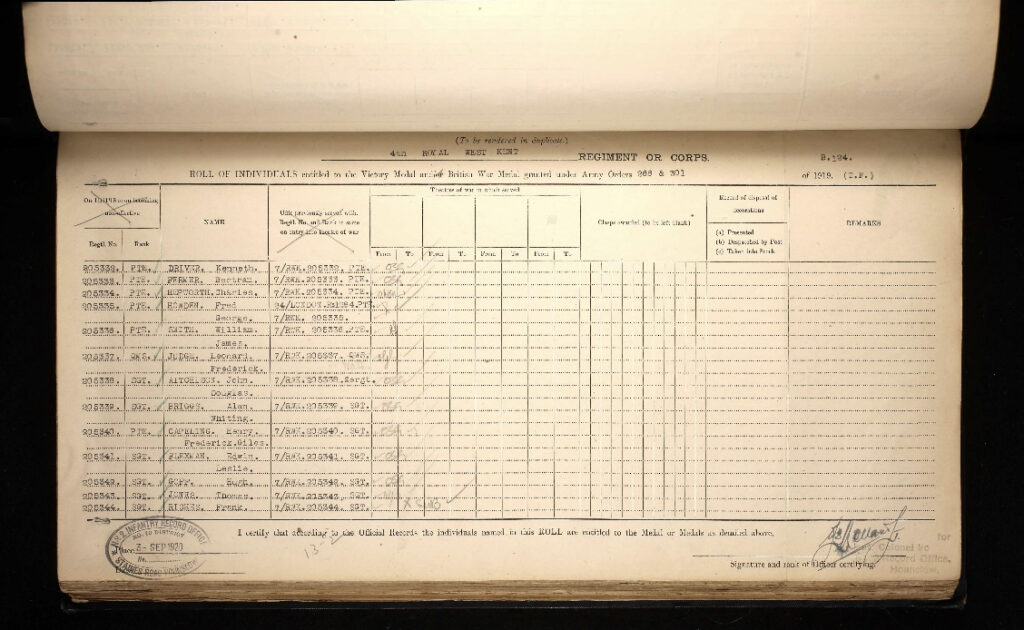 (To be rendered in duplicate.)
4th ROYAL WEST KENT REGIMENT OR CORPS. B.124.
ROLL OF INDIVIDUALS entitled to the Victory Medal and/or British War Medal granted under Army Orders 266 & 301 of 1919. (I.F.)
Theatres of war in which served
Unit previously served with. Regtl. No. and Rank in same on entry into theatre of war
Clasps awarded (to be left blank)
Record of disposal of decorations
Regtl. No. Rank NAME
(a) Presented
(b) Despatched by Post
(c) Taken into Stock
REMARKS
From To From To From To From To
205332. PTE. DRIVER. Kenneth. 7/RWK. 205332. PTE.
205333. PTE. Bertram. 7/RWK. 205333. PTE.
205334. PTE. HEPWORTH. Charles. 7/RWK. 205334. PTE.
205335. PTE. HOWDEN. Fred
George. 7/RWK. 205335.
205336. PTE. SMITH. William. 7/RWK. 205336. PTE.
James.
205337. QMS. JUDGE. Leonard. 7/RWK. 205337. QMS.
Frederick.
205338. SGT. AITCHISON. John. 7/RWK. 205338. Sergt.
Douglas.
205339. SGT. BRIGGS. Alan. 7/RWK. 205339. SGT.
Whiting.
205340. PTE. Henry. 7/RWK. 205340. SGT.
Frederick. Giles.
205341. SGT. FLEXMAN. Edwin. 7/RWK. 205341. SGT.
Leslie.
205342. SGT. GOFF. Hugh. 7/RWK. 205342. SGT.
205343. SGT. JONES. Thomas. 7/RWK. 205343. SGT.
205344. SGT. Frank. 7/RWK. 205344. SGT.
I certify that according to the Official Records the individuals named in this ROLL are entitled to the Medal or Medals as detailed above.
INFANTRY RECORD OFFICE
Place 3- SEP 1920
STAINES ROAD HOUNSLOW
for
Colonel i/c
Record Office,
Hounslow.
Signature and rank of Officer certifying.